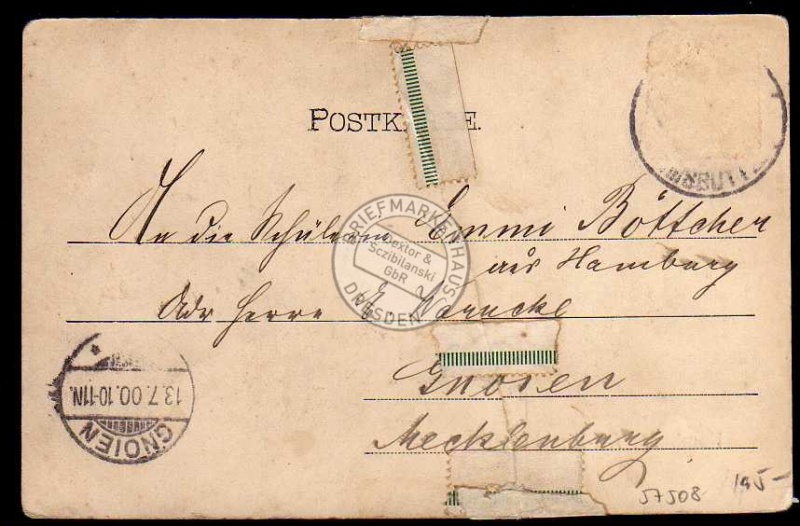 POSTK
An die Schülerin Emmi Böttcher
aus Hamburg
Adr Herrn
Gnoien
Mecklenburg
13.7.00.10-11N.
GNOIEN
BRIEFMARKENHAUS
Dextor &
Sczibilanski
GbR
DRESDEN
57508
195-